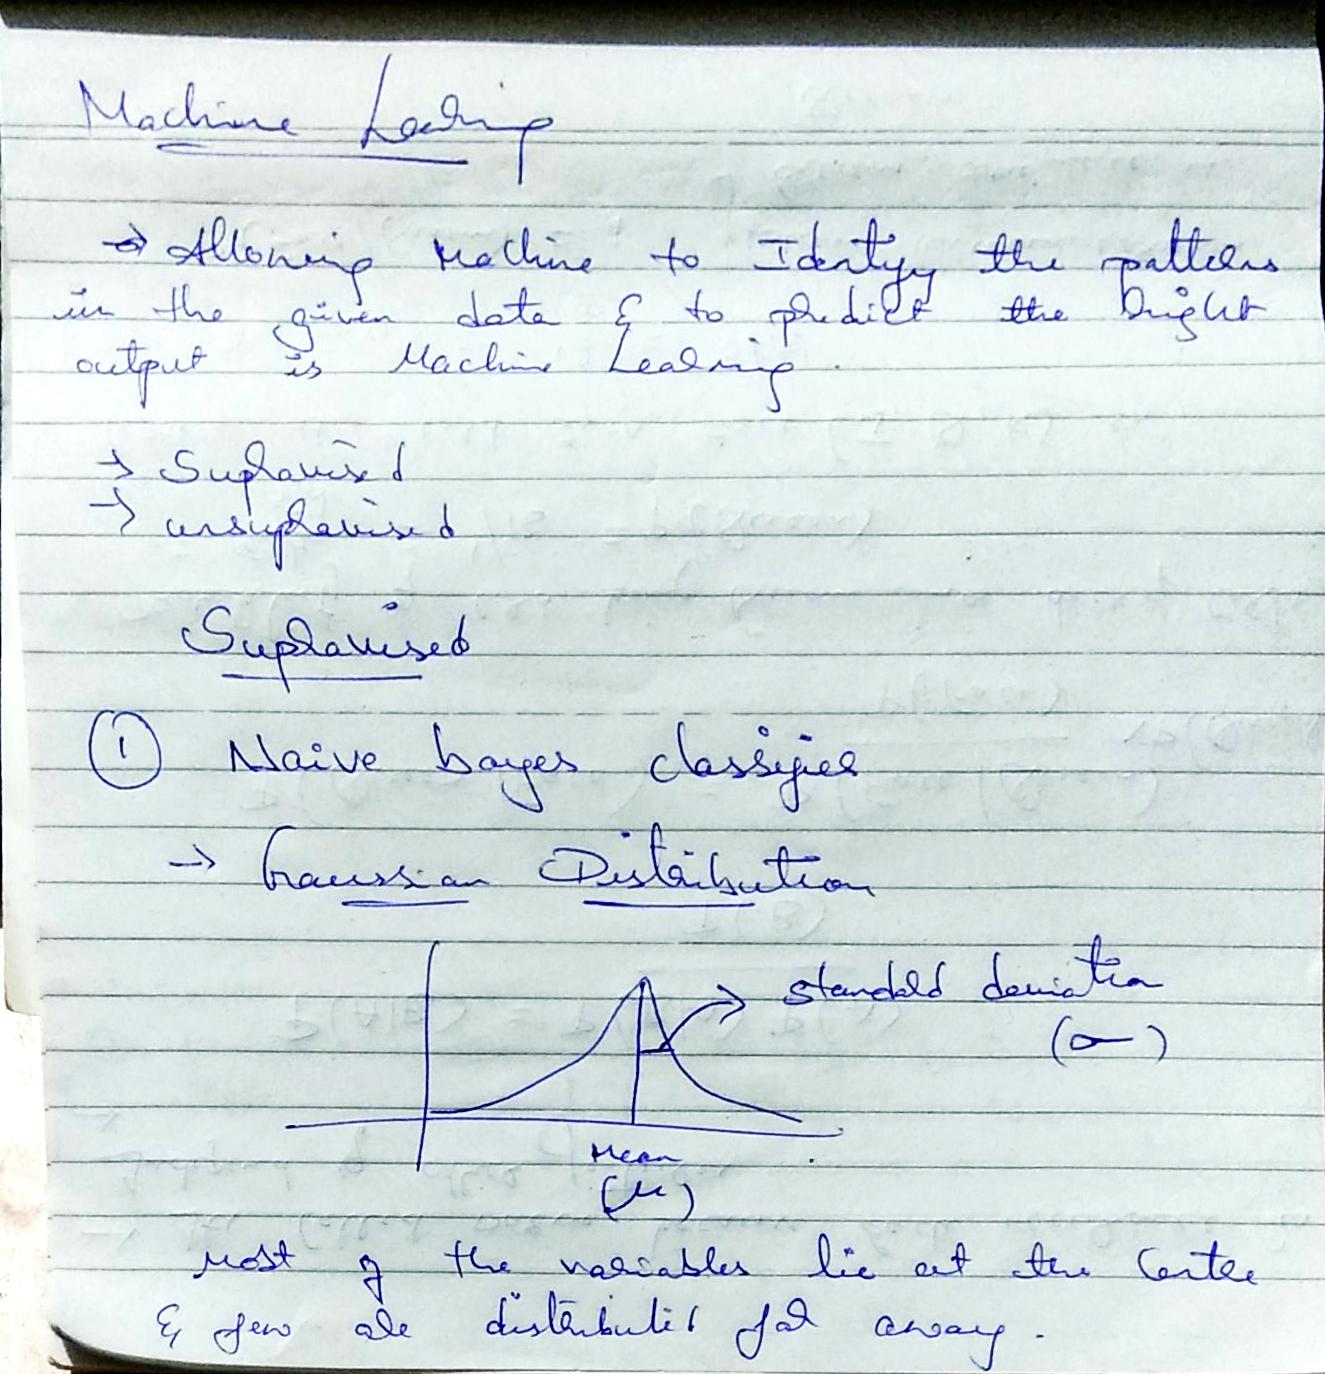 Machine Learning
→ Allowing Machine to Identify the patterns
in the given data & to predict the right
output is Machine Learning.
→ Supravised
→ unsupravised
Supravised
① Naive bayes classifier
→ Gaussian Distribution
standard deviation
(σ)
Mean
(μ)
Most of the variables lie at the Center
& few are distributed far away.